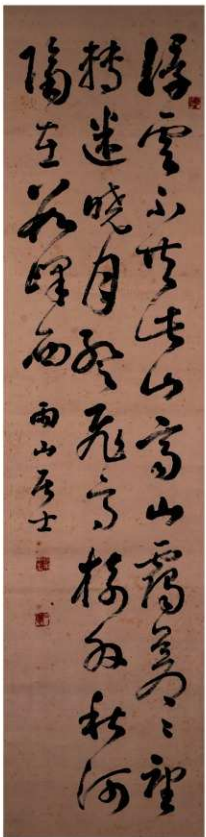 浮雲不共此山齊山靄蒼〻望
轉迷曉月暫飛高樹外秋河
隔在數峰西
雨山居士